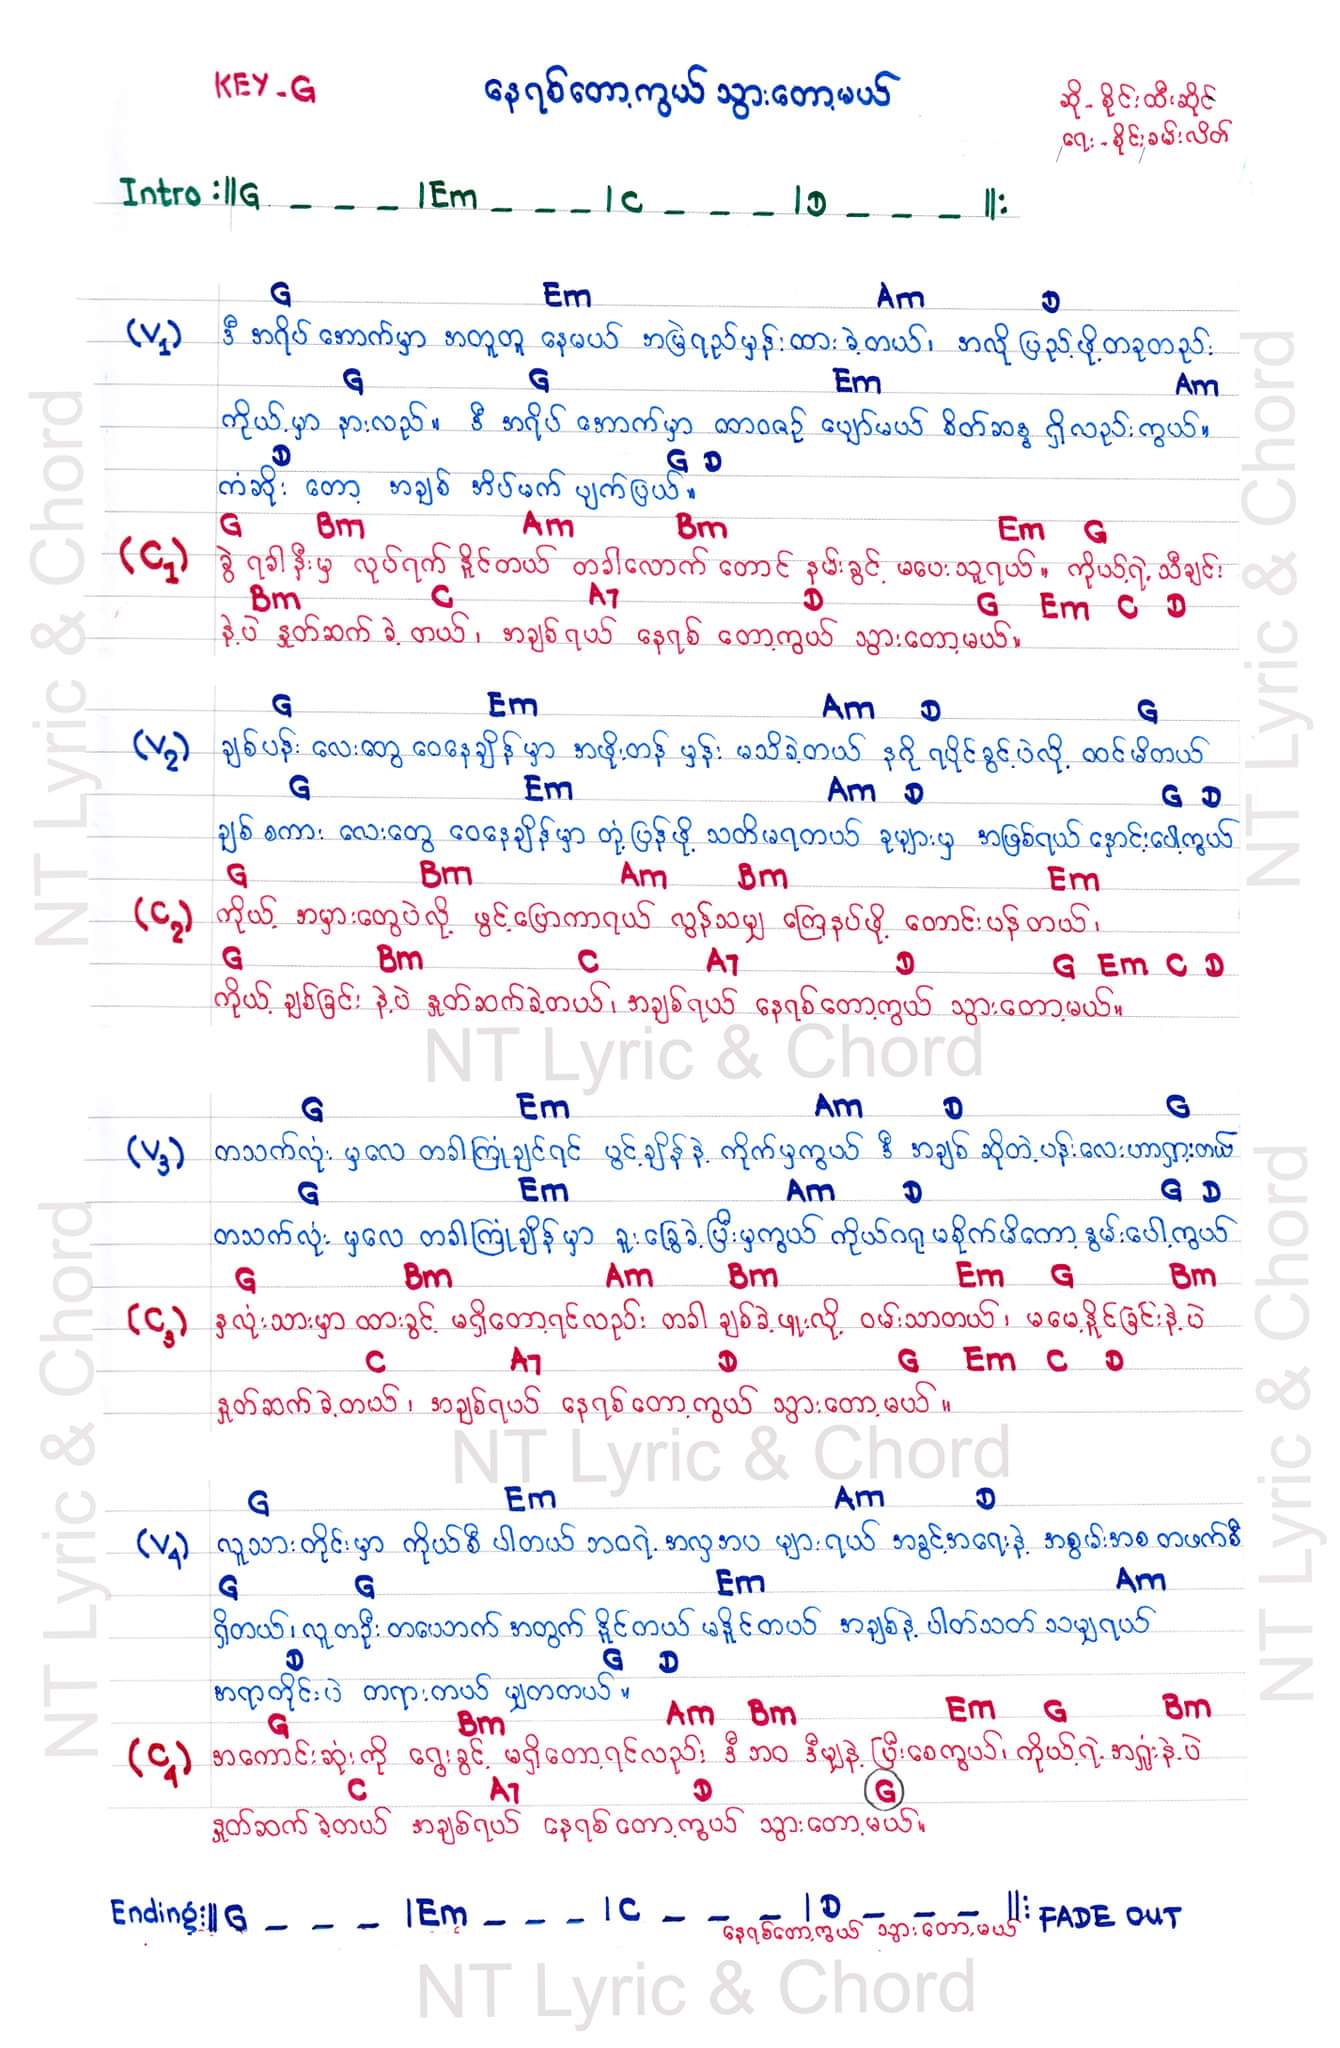 KEY-G
နေရစ်တော့ကွယ် သွားတော့မယ်
ဆို - စိုင်းထီးဆိုင်
ရေး - စိုင်းခမ်းလိတ်
Intro :||G _ _ _ |Em _ _ _ |C _ _ _ |D _ _ _ ||:
G Em Am D
(V1) ဒီ အရိပ် အောက်မှာ အတူတူ နေမယ် အမြဲရည်မှန်းထားခဲ့တယ်၊ အလို ပြည့်ဖို့တခုတည်း
G G Em Am
ကိုယ့်မှာ နားလည်။ ဒီ အရိပ် အောက်မှာ ထာဝစဉ် ပျော်မယ် စိတ်ဆန္ဒ ရှိလည်းကွယ်။
D G D
ကံဆိုး တော့ အချစ် အိပ်မက် ပျက်ပြယ်။
G Bm Am Bm Em G
(C1) ခွဲ ရခါနီးမှ လုပ်ရက် နိူင်တယ် တခါလောက် တောင် နမ်းခွင့် မပေးသူရယ်။ ကိုယ့်ရဲ့ သီချင်း
Bm C A7 D G Em C D
နဲ့ပဲ နှုတ်ဆက် ခဲ့ တယ်၊ အချစ်ရယ် နေရစ် တော့ကွယ် သွားတော့မယ်။
G Em Am D G
(V2) ချစ်ပန်း လေးတွေ ဝေနေချိန် မှာ အဖိုးတန် မှန်း မသိခဲ့တယ် နဂို ရပိုင်ခွင့်ပဲလို့ ထင်မိတယ်
G Em Am D G D
ချစ် စကား လေးတွေ ဝေနေချိန်မှာ တုံ့ပြန်ဖို့ သတိမရတယ် ခုများမှ အဖြစ်ရယ် နှောင်းပေါ့ကွယ်
G Bm Am Bm Em
(C2) ကိုယ့် အမှားတွေပဲလို့ ဖွင့်ပြောကာရယ် လွန်သမျှ ကြေနပ်ဖို့ တောင်းပန်တယ်၊
G Bm C A7 D G Em C D
ကိုယ့် ချစ်ခြင်း နဲ့ပဲ နှုတ်ဆက်ခဲ့တယ်၊ အချစ်ရယ် နေရစ်တော့ကွယ် သွားတော့မယ်။
G Em Am D G
(V3) တသက်လုံး မှလေ တခါကြုံချင်ရင် ပွင့်ချိန်နဲ့ ကိုက်မှကွယ် ဒီ အချစ် ဆိုတဲ့ပန်းလေးဟာရှားတယ်
G Em Am D G D
တသက်လုံး မှလေ တခါကြုံချိန်မှာ ခူးခြွေခဲ့ ပြီးမှကွယ် ကိုယ်ဂရုမစိုက်မိတော့ နွမ်းပေါ့ကွယ်
G Bm Am Bm Em G Bm
(C3) နှလုံးသားမှာ ထားခွင့် မရှိတော့ရင်လည်း တခါ ချစ်ခဲ့ဖူးလို့ ဝမ်းသာတယ်၊ မမေ့နိူင်ခြင်းနဲ့ပဲ
C A7 D G Em C D
နှုတ်ဆက်ခဲ့တယ်၊ အချစ်ရယ် နေရစ်တော့ကွယ် သွားတော့မယ်။
G Em Am D
(V4) လူသားတိုင်းမှာ ကိုယ်စီ ပါတယ် ဘဝရဲ့ အလှအပ များရယ် အခွင့်အရေးနဲ့ အစွမ်းအစ တဖက်စီ
G G Em Am
ရှိတယ်၊ လူတဦး တယောက် အတွက် နိူင်တယ် မနိူင်တယ် အချစ်နဲ့ ပါတ်သတ် သမျှရယ်
D G D
အရာတိုင်းပဲ တရားတယ် မျှတတယ်။
G Bm Am Bm Em G Bm
(C4) အကောင်းဆုံးကို ရွေးခွင့် မရှိတော့ရင်လည်း ဒီဘဝ ဒီမျှနဲ့ ပြီးစေကွယ်၊ ကိုယ့်ရဲ့ အရှုံးနဲ့ပဲ
C A7 D G
နှုတ်ဆက် ခဲ့တယ် အချစ်ရယ် နေရစ်တော့ကွယ် သွားတော့မယ်။
Ending:||G _ _ _ |Em _ _ _ |C _ _ _ |D _ _ _ ||: FADE OUT
နေရစ်တော့ကွယ် သွားတော့မယ်
NT Lyric & Chord
NT Lyric & Chord
NT Lyric & Chord
NT Lyric & Chord
NT Lyric & Chord
NT Lyric & Chord
NT Lyric & Chord